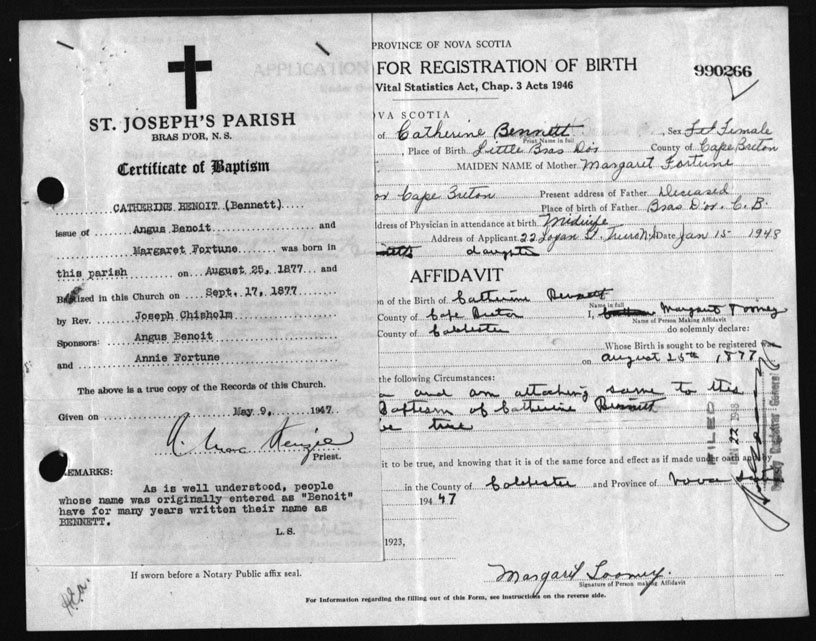 ST. JOSEPH'S PARISH
BRAS D'OR, N. S.
Certificate of Baptism
CATHERINE BENOIT (Bennett)
issue of Angus Benoit and
Margaret Fortune was born in
this parish on August 25, 1877 and
Baptized in this Church on Sept. 17, 1877
by Rev. Joseph Chisholm
Sponsors: Angus Benoit
and Annie Fortune
The above is a true copy of the Records of this Church.
Given on May 9, 1947.
Priest.
REMARKS:
As is well understood, people
whose name was originally entered as "Benoit"
have for many years written their name as
BENNETT.
L.S.
PROVINCE OF NOVA SCOTIA
FOR REGISTRATION OF BIRTH
990266
Vital Statistics Act, Chap. 3 Acts 1946
OVA SCOTIA
of Catherine Bennett, Sex Female
Print Name in full
, Place of Birth Little Bras D'or County of Cape Breton
MAIDEN NAME of Mother Margaret Fortune
or Cape Breton Present address of Father Deceased
Place of birth of Father Bras D'or, C. B.
ddress of Physician in attendance at birth Midwife
Address of Applicant 22 Logan St. Truro N.S. Date Jan 15 1948
daughter
AFFIDAVIT
n of the Birth of Catherine Bennett
Name in full
County of Cape Breton I, Margaret Toomey
Name of Person Making Affidavit
County of Colchester do solemnly declare:
Whose Birth is sought to be registered was
on August 25th, 1877
the following Circumstances:
and am attaching same to this
Baptism of Catherine Bennett
true
it to be true, and knowing that it is of the same force and effect as if made under oath
in the County of Colchester and Province of Nova
194 47
FILED
22 1948
1923,
If sworn before a Notary Public affix seal.
Margaret Toomey.
Signature of Person making Affidavit
For Information regarding the filling out of this Form, see instructions on the reverse side.